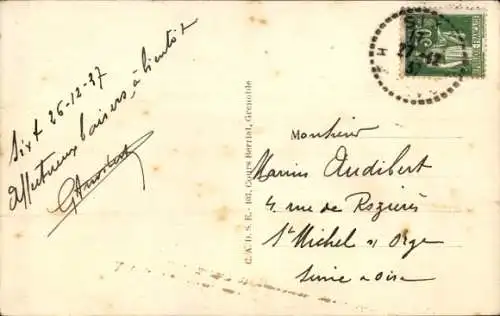 Sixt 26-12-37
Affectueux baisers, à bientôt
C.A.D.S.E. - 107, Cours Berriat, Grenoble
SIXT
27-12
Hte
50
POSTES FRANÇAISES
Monsieur
Marius Audibert
4. rue de Rozières
St Michel s/ Orge
Seine & Oise